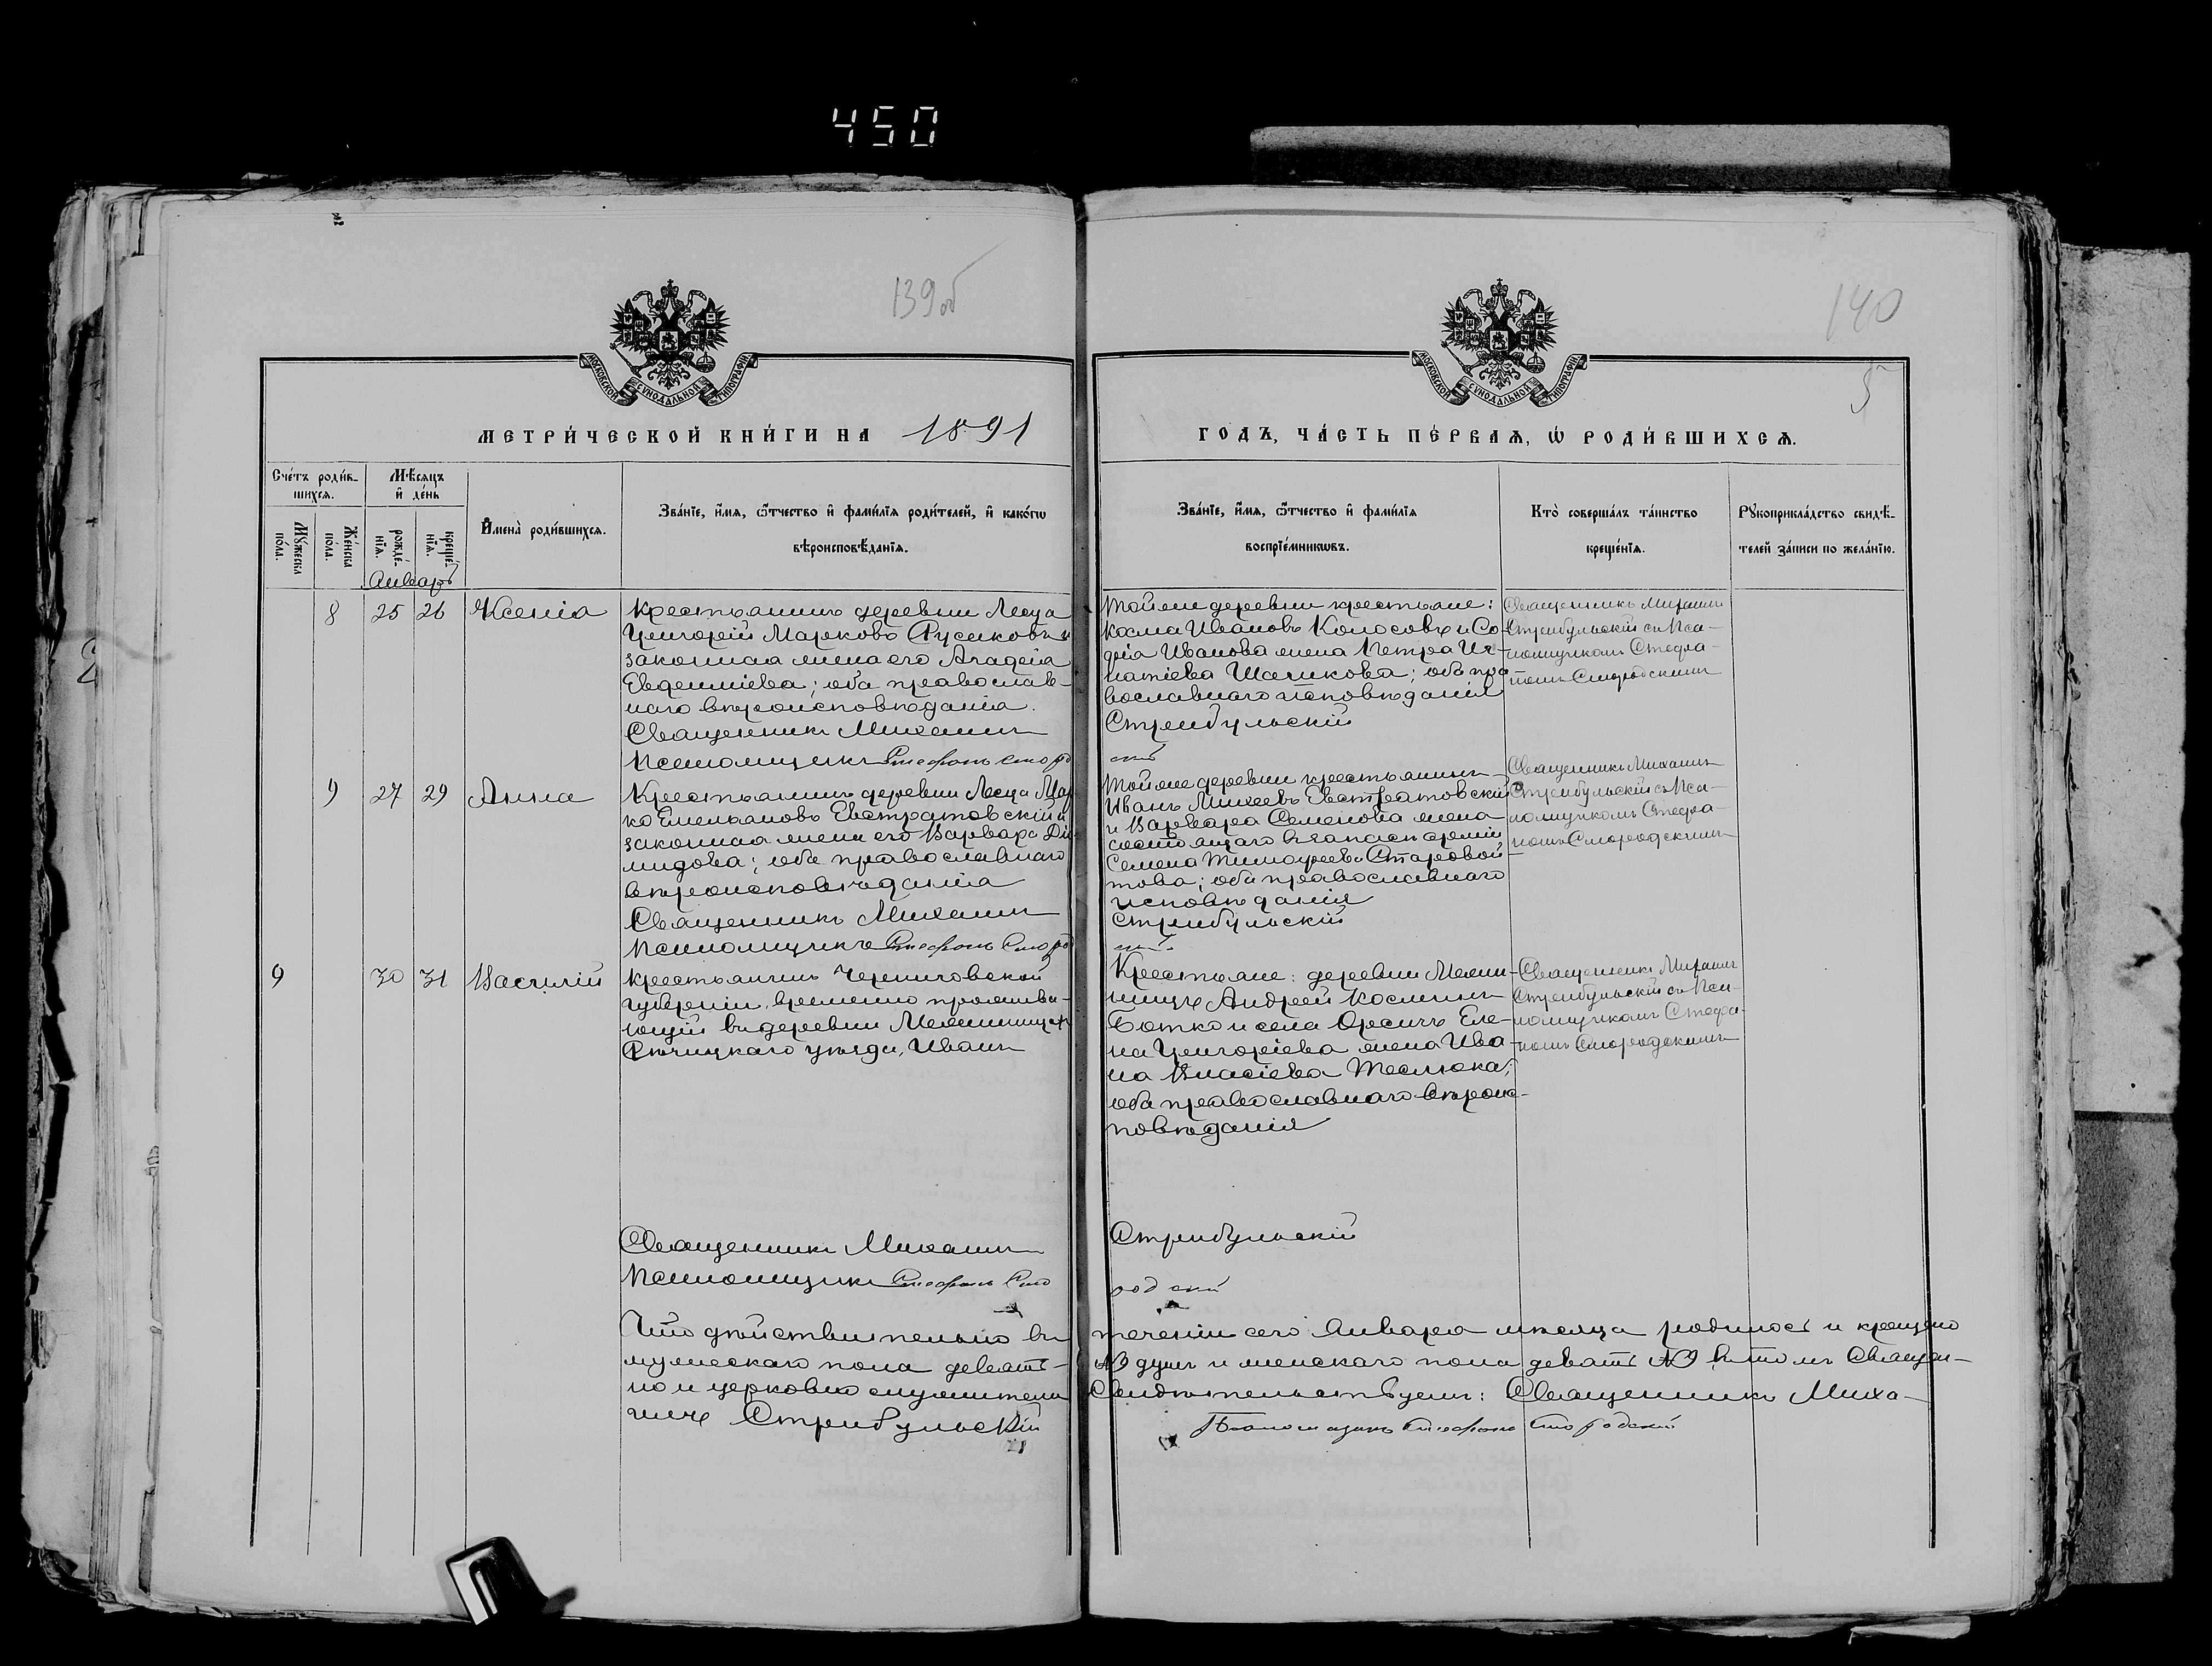 450
139об
140
5
МОСКОВСКОЙ СУНОДАЛЬНОЙ ТИПОГРАФІИ
МОСКОВСКОЙ СУНОДАЛЬНОЙ ТИПОГРАФІИ
МЕТРИ́ЧЕСКОЙ КНИ́ГИ НА 1891
ГОДЪ, ЧА́СТЬ ПЕ́РВАѦ, Ѡ҆ РОДИ́ВШИХСѦ.
Сче́тъ роди́в-
шихсѧ.
Мѣ́сѧцъ
и҆ де́нь
Мꙋ́жеска
по́ла.
Же́нска
по́ла.
рожде́-
нїѧ.
креще́-
нїѧ.
Январь
И҆мена̀ роди́вшихсѧ.
Зва́нїе, и҆́мѧ, ѻ҆́тчество и҆ фами́лїѧ роди́телей, и҆ како́гѡ
вѣроисповѣ́данїѧ.
Зва́нїе, и҆́мѧ, ѻ҆́тчество и҆ фами́лїѧ
воспрїе́мникѡвъ.
Кто̀ соверша́лъ та́инство
креще́нїѧ.
Рꙋкоприкла́дство свидѣ́-
телей за́писи по жела́нїю.
8 25 26 Ксенія
Крестьянинъ деревни Леща
Григорій Марковъ Русиковъ и
законная жена его Агафія
Евфиміева; оба православ-
наго вѣроисповѣданія.
Священникъ Михаилъ
Псаломщикъ Стефанъ Смород
Той же деревни крестьяне:
Косма Ивановъ Колосовъ и Со-
фія Иванова жена Петра Иг-
натіева Шапикова; оба пра
вославнаго исповѣданія
Стрибульскій
скій
Священникъ Михаилъ
Стрибульскій съ Пса-
ломщикомъ Стефа-
номъ Смородскимъ
9 27 29 Анна
Крестьянинъ деревни Леща Мар
ко Емельяновъ Евстратовскій и
законная жена его Варвара Дiо
мидова; оба православнаго
вѣроисповѣданія
Священникъ Михаилъ
Псаломщикъ Стефанъ Смород
Той же деревни крестьянинъ
Иванъ Михеевъ Евстратовскій
и Варвара Семенова жена
состоящаго въ запасѣ арміи
Семена Тимофеева Старовой
това; оба православнаго
исповѣданія
Стрибульскій
скій
Священникъ Михаилъ
Стрибульскій съ Пса-
ломщикомъ Стефа-
номъ Смородскимъ
9 30 31 Василій
Крестьянинъ Черниговской
губерніи, временно прожива-
ющій въ деревни
Рѣчицкаго уѣзда, Иванъ
Крестьяне: деревни
Андрей Косминъ
Ботко и села Еле-
на Григоріева жена Ива-
на Власіева Теслюка;
оба православнаго вѣроис-
повѣданія
Священникъ Михаилъ
Стрибульскій съ Пса-
ломщикомъ Стефа-
номъ Смородскимъ
Священникъ Михаилъ
Стрибульскій
Псаломщикъ Стефанъ Смо
родскій
Что дѣйствительно въ теченіи сего Января мѣсяца родилось и крещено
мужескаго пола девять №9 душъ и женскаго пола девять №9 въ томъ Священ-
но и церковно служители Свидѣтельствуемъ: Священникъ Миха-
илъ Стрибульскій
Псаломщикъ Стефанъ Смородскій